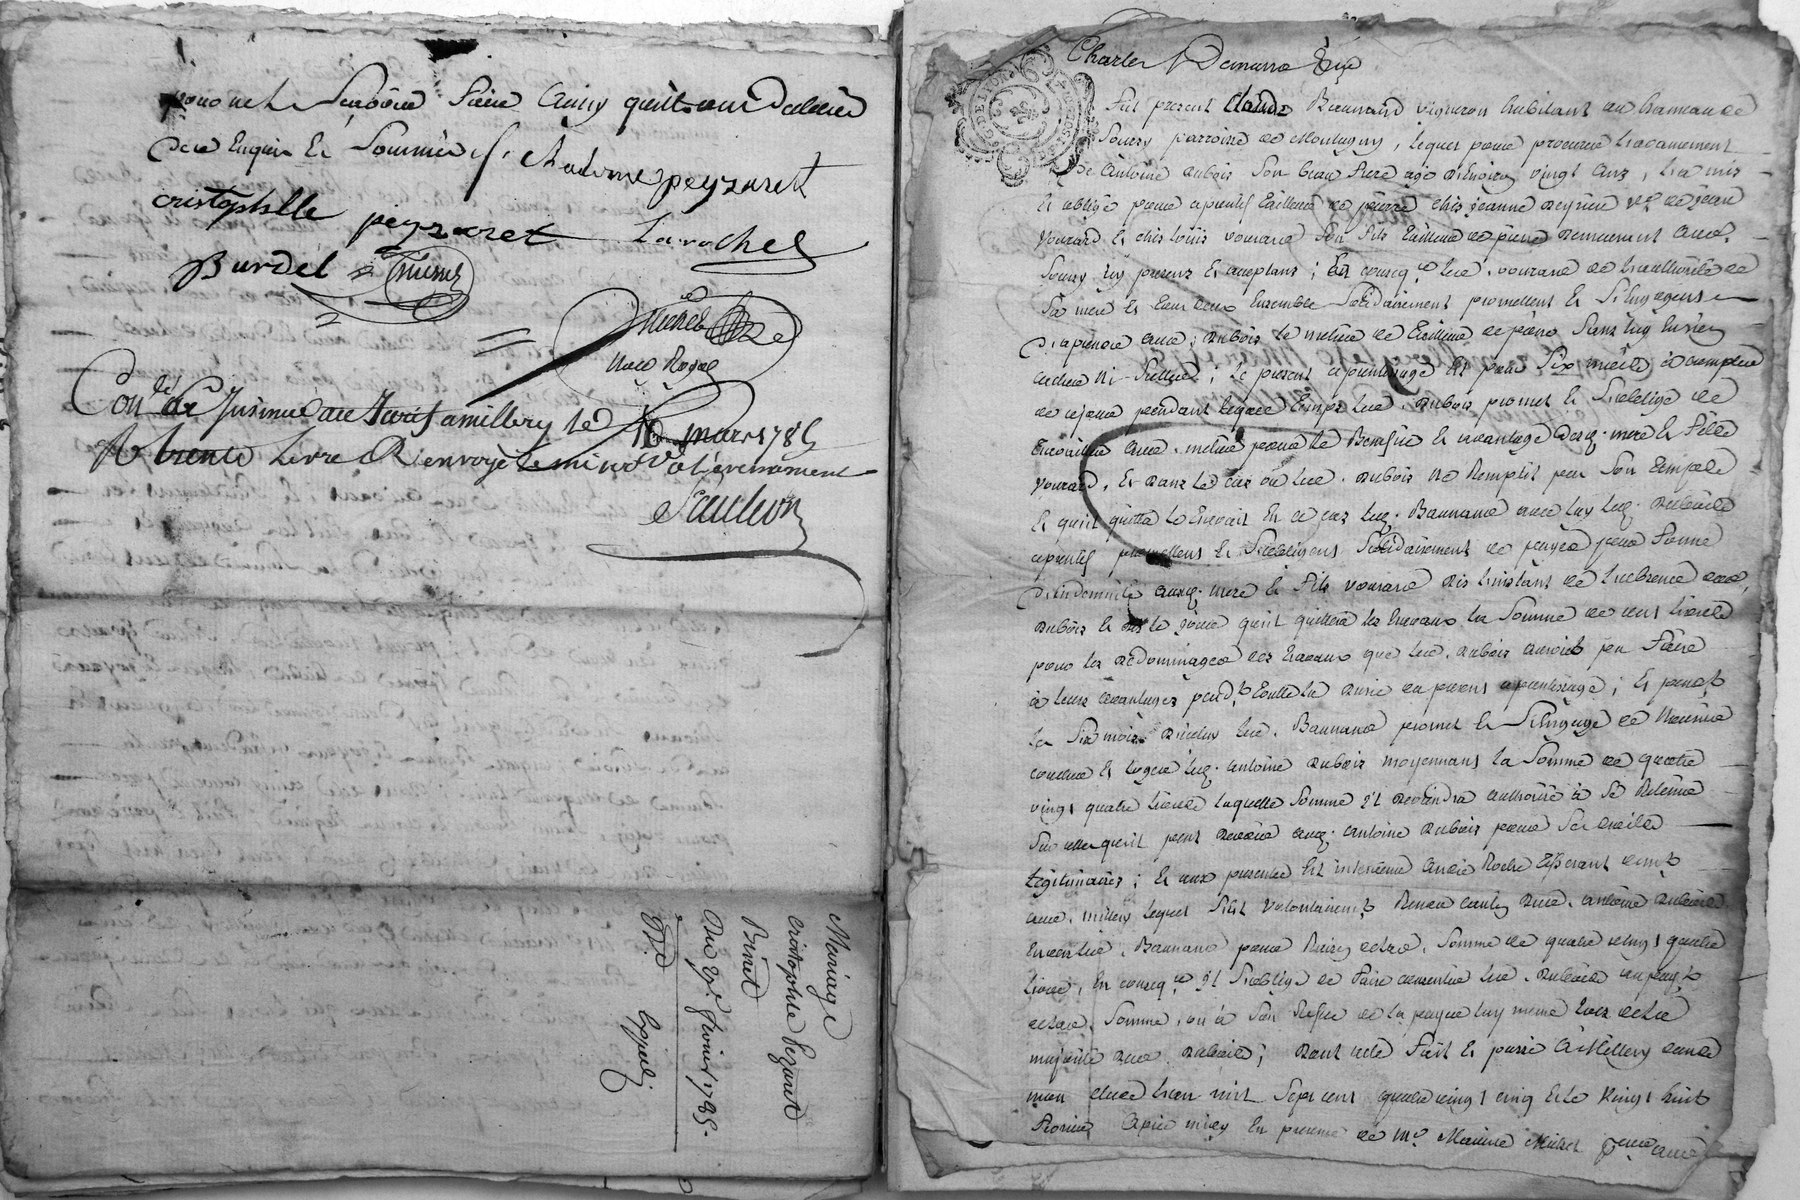 pour ne L Sçavoir faire Ainsy quils ont declaré
de ce Enquis Et Sommés
cristophlle peyzaret
Larochel
Burdel
Michel
No.re Royal
Con.lé Et Insinué au Tari famillery le 16 mars 1785
trente livre Renvoyé
Saulnon
Mariage
Cristophle Pezaret
Binet
Du 29.e fevrier 1785.
Exp.é
Fut present Claude Bannand vigneron habitant au hameau de
Sourzy parroisse de Montagny, lequel pour procurer
de Antoine dubois Son beau frere agé d'Environ vingt ans, l'a mis
Et obligé pour aprentif tailleur de pierre chés jeanne Reyrieu v.e de jean
vourard Et chés louis vourard Son fils tailleur de pierre demeurant aud.
Sourzy icy presens Et aceptans; En conseq.ce led. vourard de l'authorité de
Sa mere Et Eux deux Ensemble Solidairement promettent Et S'Engagent
d'aprendre aud. dubois le metier de tailleur de pierre Sans luy En rien
cacher Ni Sceller; le present aprentissage Est pour Six mois à compter
de ce jour pendant lequel temps led. dubois promet Et S'oblige de
travailler aud. metier pour le Benefice Et avantage desq. mere Et fils
vourard, Et dans le cas ou led. dubois Ne Remplit pas Son temps
Et qu'il quitta le travail En ce cas led. Bannand avec luy led. dubois
aprentif promettent Et S'obligent Solidairement de payer pour forme
d'indemnité ausq. mere Et fils vourard dès l'instant de l'absence dud.
dubois Et dès le jour qu'il quittera les travaux la Somme de cent livres
pour les dedommager des travaux que led. dubois auroit peu faire
à leurs avantages pend.t toutte la durée du present aprentissage; Et pend.t
les Six mois d'icelux led. Bannand promet Et S'Engage de Nourrir
coucher Et loger led. antoine dubois moyennant la Somme de quatre
vingt quatre livres laquelle Somme il deviendra authorisé à Se Retenir
Sur celle qu'il peut devoir aud. antoine dubois pour Ses droits
legitimaires; Et aux presentes Est intervenu André Roche
aud. millery lequel S'Est volontairem.t Rendu caution dud. antoine dubois
Envers led. Bannand pour Raison de lad. Somme de quatre vingt quatre
livres, En conseq.ce il S'oblige de faire consentir led. dubois au pay.t
de lad. Somme, ou à Son Refus de la payer luy meme lors de la
majorité dud. dubois; dont acte fait Et passé à Millery dans
mon Etude l'an mil Sept cent quatre vingt cinq Et le vingt huit
fevrier Après midy En presence de M.e Maurice Michel